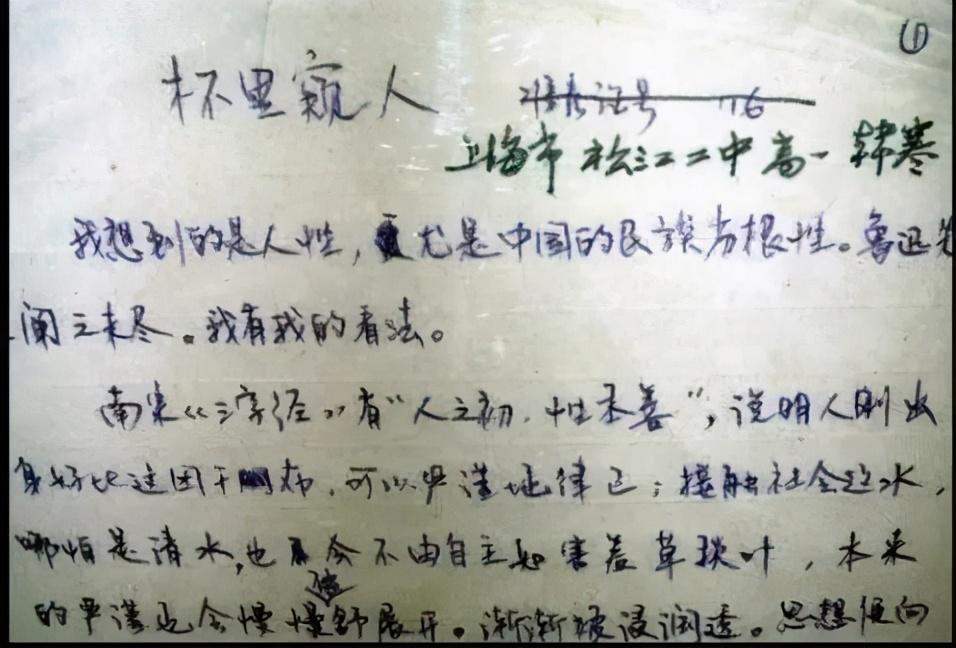 ①
杯里窥人
准考证号 116
上海市松江二中高一 韩寒
我想到的是人性,尤是中国的民族劣根性。鲁迅先
阐之未尽。我有我的看法。
南宋《三字经》有“人之初,性本善”,说明人刚出
身好比这团干布,可以严谨地律己;接触社会这水,
哪怕是清水,也会不由自主如害羞草掞叶,本来
的严谨也会慢慢地舒展开。渐渐被浸润透。思想便向